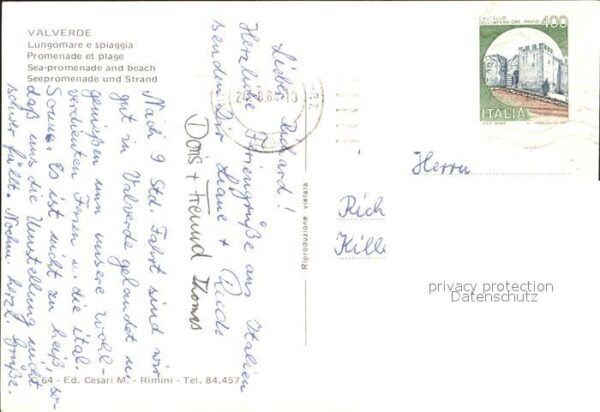 VALVERDE
Lungomare e spiaggia
Promenade et plage
Sea-promenade and beach
Seepromenade und Strand
Herzliche Feriengrüße aus Italien
senden Dir Liane + Rudi
Doris + Freund Thomas
Nach 9 Std. Fahrt sind wir
gut in Valverde gelandet u.
genießen nun unsere wohl-
verdienten Ferien u. die ital.
Sonne. Es ist nicht zu heiß, so-
daß uns die Umstellung nicht
schwer fällt. Nochm. herzl. Grüße.
64 - Ed. Cesari M. - Rimini - Tel. 84.457
Riproduzione vietata
CASTELLO
DELL'IMPERATORE - PRATO
400
ITALIA
Herrn
Rich
Kill
privacy protection
Datenschutz